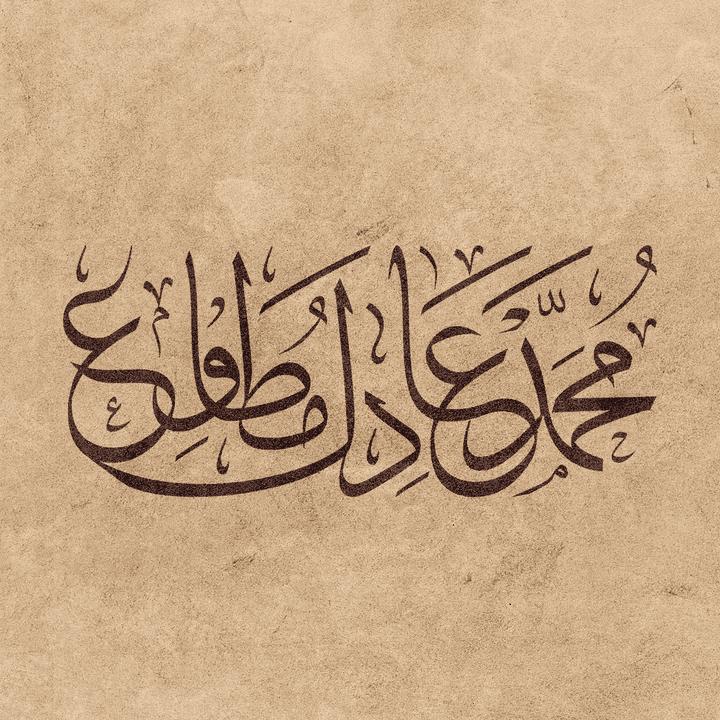 مُحَمَّد عَادِل مُطَاوِع